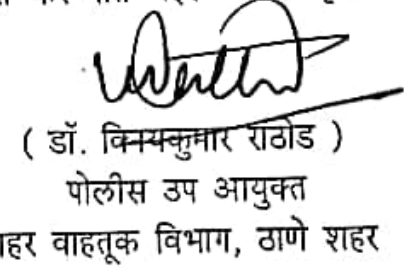 ( डॉ. विनयकुमार राठोड )
पोलीस उप आयुक्त
शहर वाहतूक विभाग, ठाणे शहर